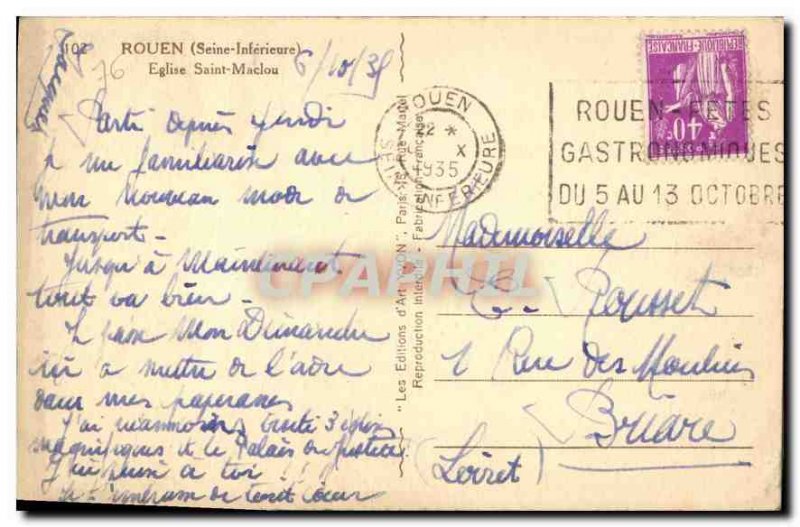 102 ROUEN (Seine-Inférieure)
Eglise Saint-Maclou
6/10/35
76
Parti depuis jeudi
je me familiarise avec
mon nouveau mode de
transport -
Jusqu'à maintenant
tout va bien -
Je passe mon Dimanche
ici à mettre de l'ordre
dans mes paperasses
J'ai néanmoins visité 3 églises
magnifiques et le Palais de Justice
J'ai pensé à toi
Je t'embrasse de tout cœur
"Les Editions d'Art "YVON", Paris, 15, Rue Martel
Reproduction Interdite - Fabrication Française
ROUEN
12 *
X
1935
SEINE INFERIEURE
REPUBLIQUE-FRANÇAISE
40c
ROUEN-FETES
GASTRONOMIQUES
DU 5 AU 13 OCTOBRE
CPAPHIL
Mademoiselle
Pousset
1 Rue des Moulins
Briare
(Loiret)